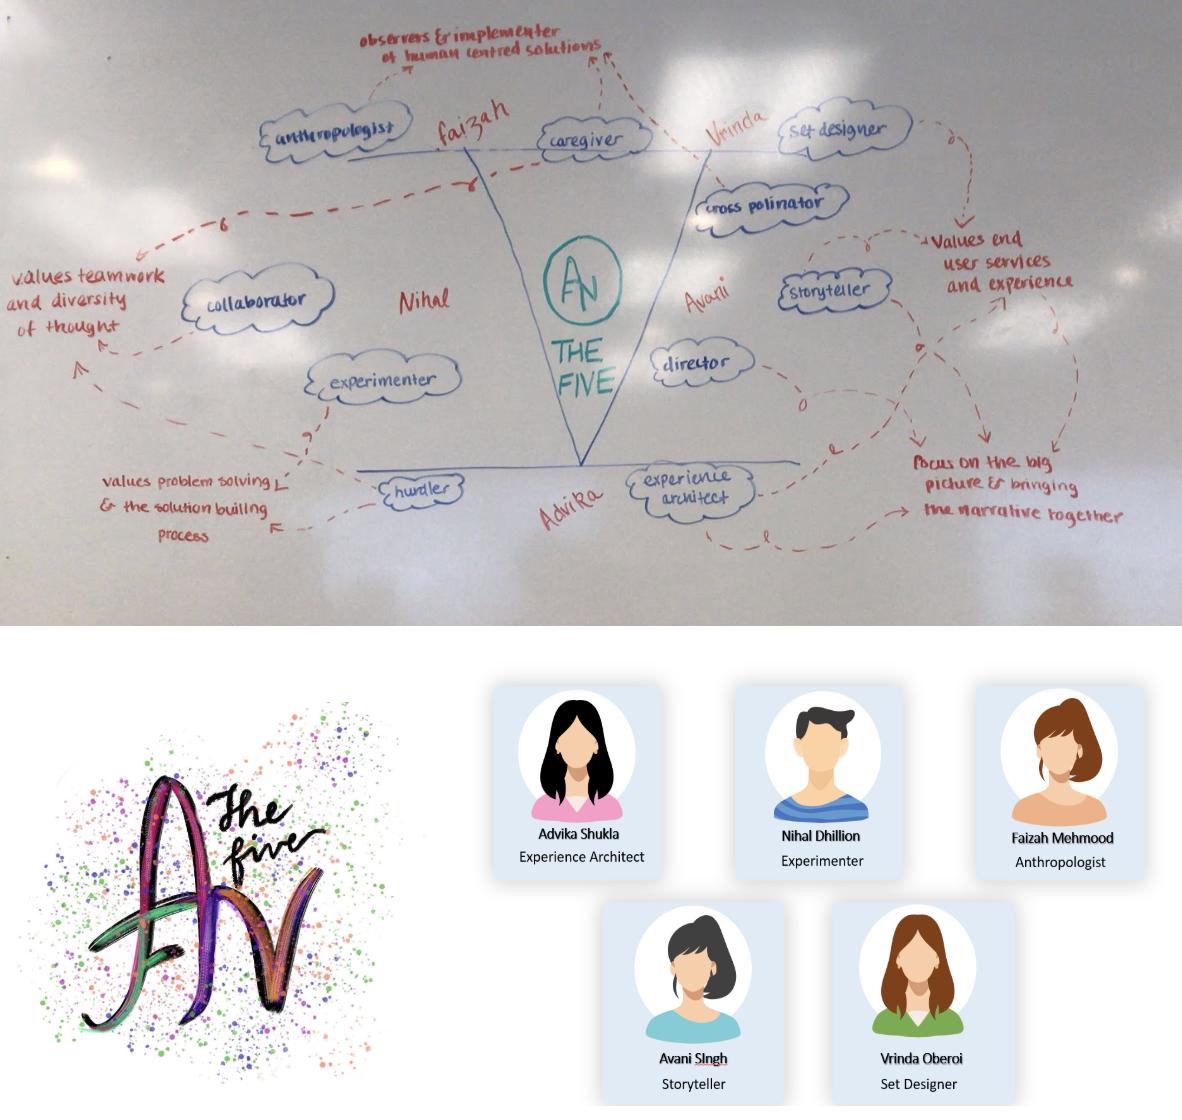 observers & implementer
of human centred solutions
anthropologist
faizah
caregiver
Vrinda
set designer
cross polinator
values teamwork
and diversity
of thought
collaborator
Nihal
AN
THE
FIVE
Avani
storyteller
Values end
user services
and experience
experimenter
director
values problem solving
& the solution builing
process
hurdler
Advika
experience
architect
focus on the big
picture & bringing
the narrative together
The
five
Advika Shukla
Experience Architect
Nihal Dhillion
Experimenter
Faizah Mehmood
Anthropologist
Avani SIngh
Storyteller
Vrinda Oberoi
Set Designer